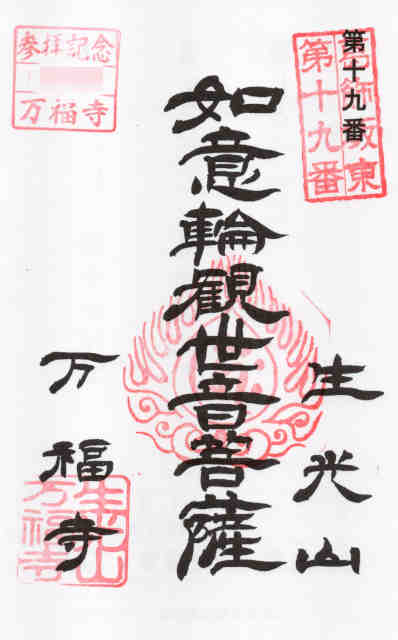 第十九番
葛飾坂東
第十九番
生光山
如意輪觀世音菩薩
參拝記念
万福寺
万福寺
生光山
万福寺